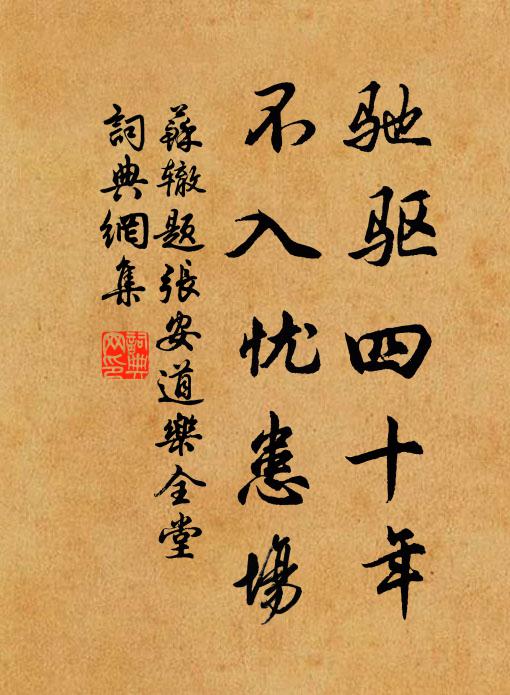 驰驱四十年
不入忧患場
蘇辙题張安道樂全堂
詞典網集
詞典網印